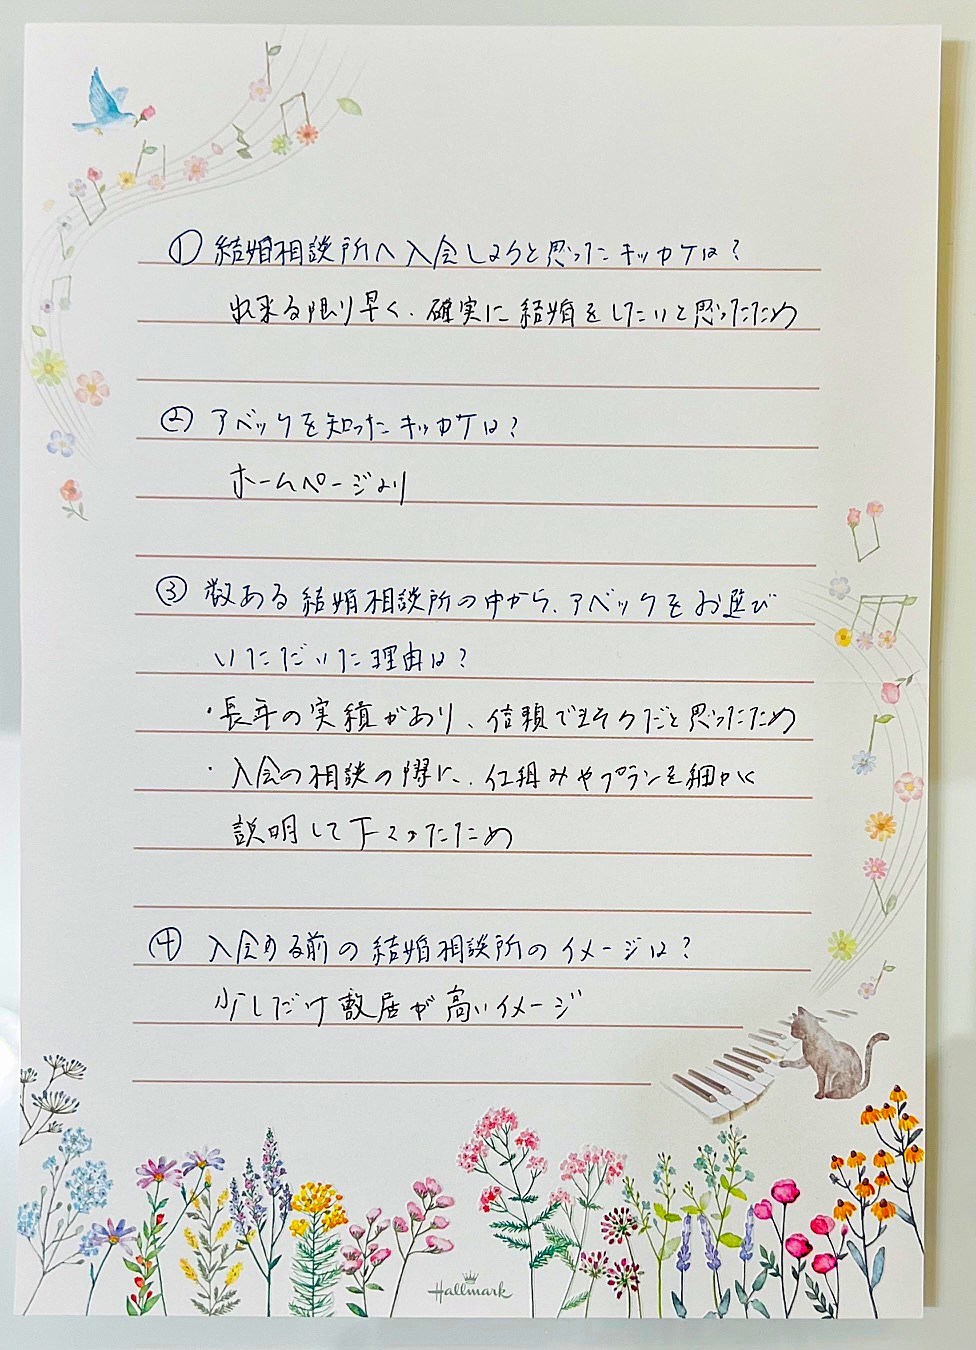 ① 結婚相談所へ入会しようと思ったキッカケは?
出来る限り早く、確実に結婚をしたいと思ったため
② アベックを知ったキッカケは?
ホームページより
③ 数ある結婚相談所の中から、アベックをお選び
いただいた理由は?
・長年の実績があり、信頼できそうだと思ったため
・入会の相談の際に、仕組みやプランを細かく
説明して下さったため
④ 入会する前の結婚相談所のイメージは?
少しだけ敷居が高いイメージ
Hallmark